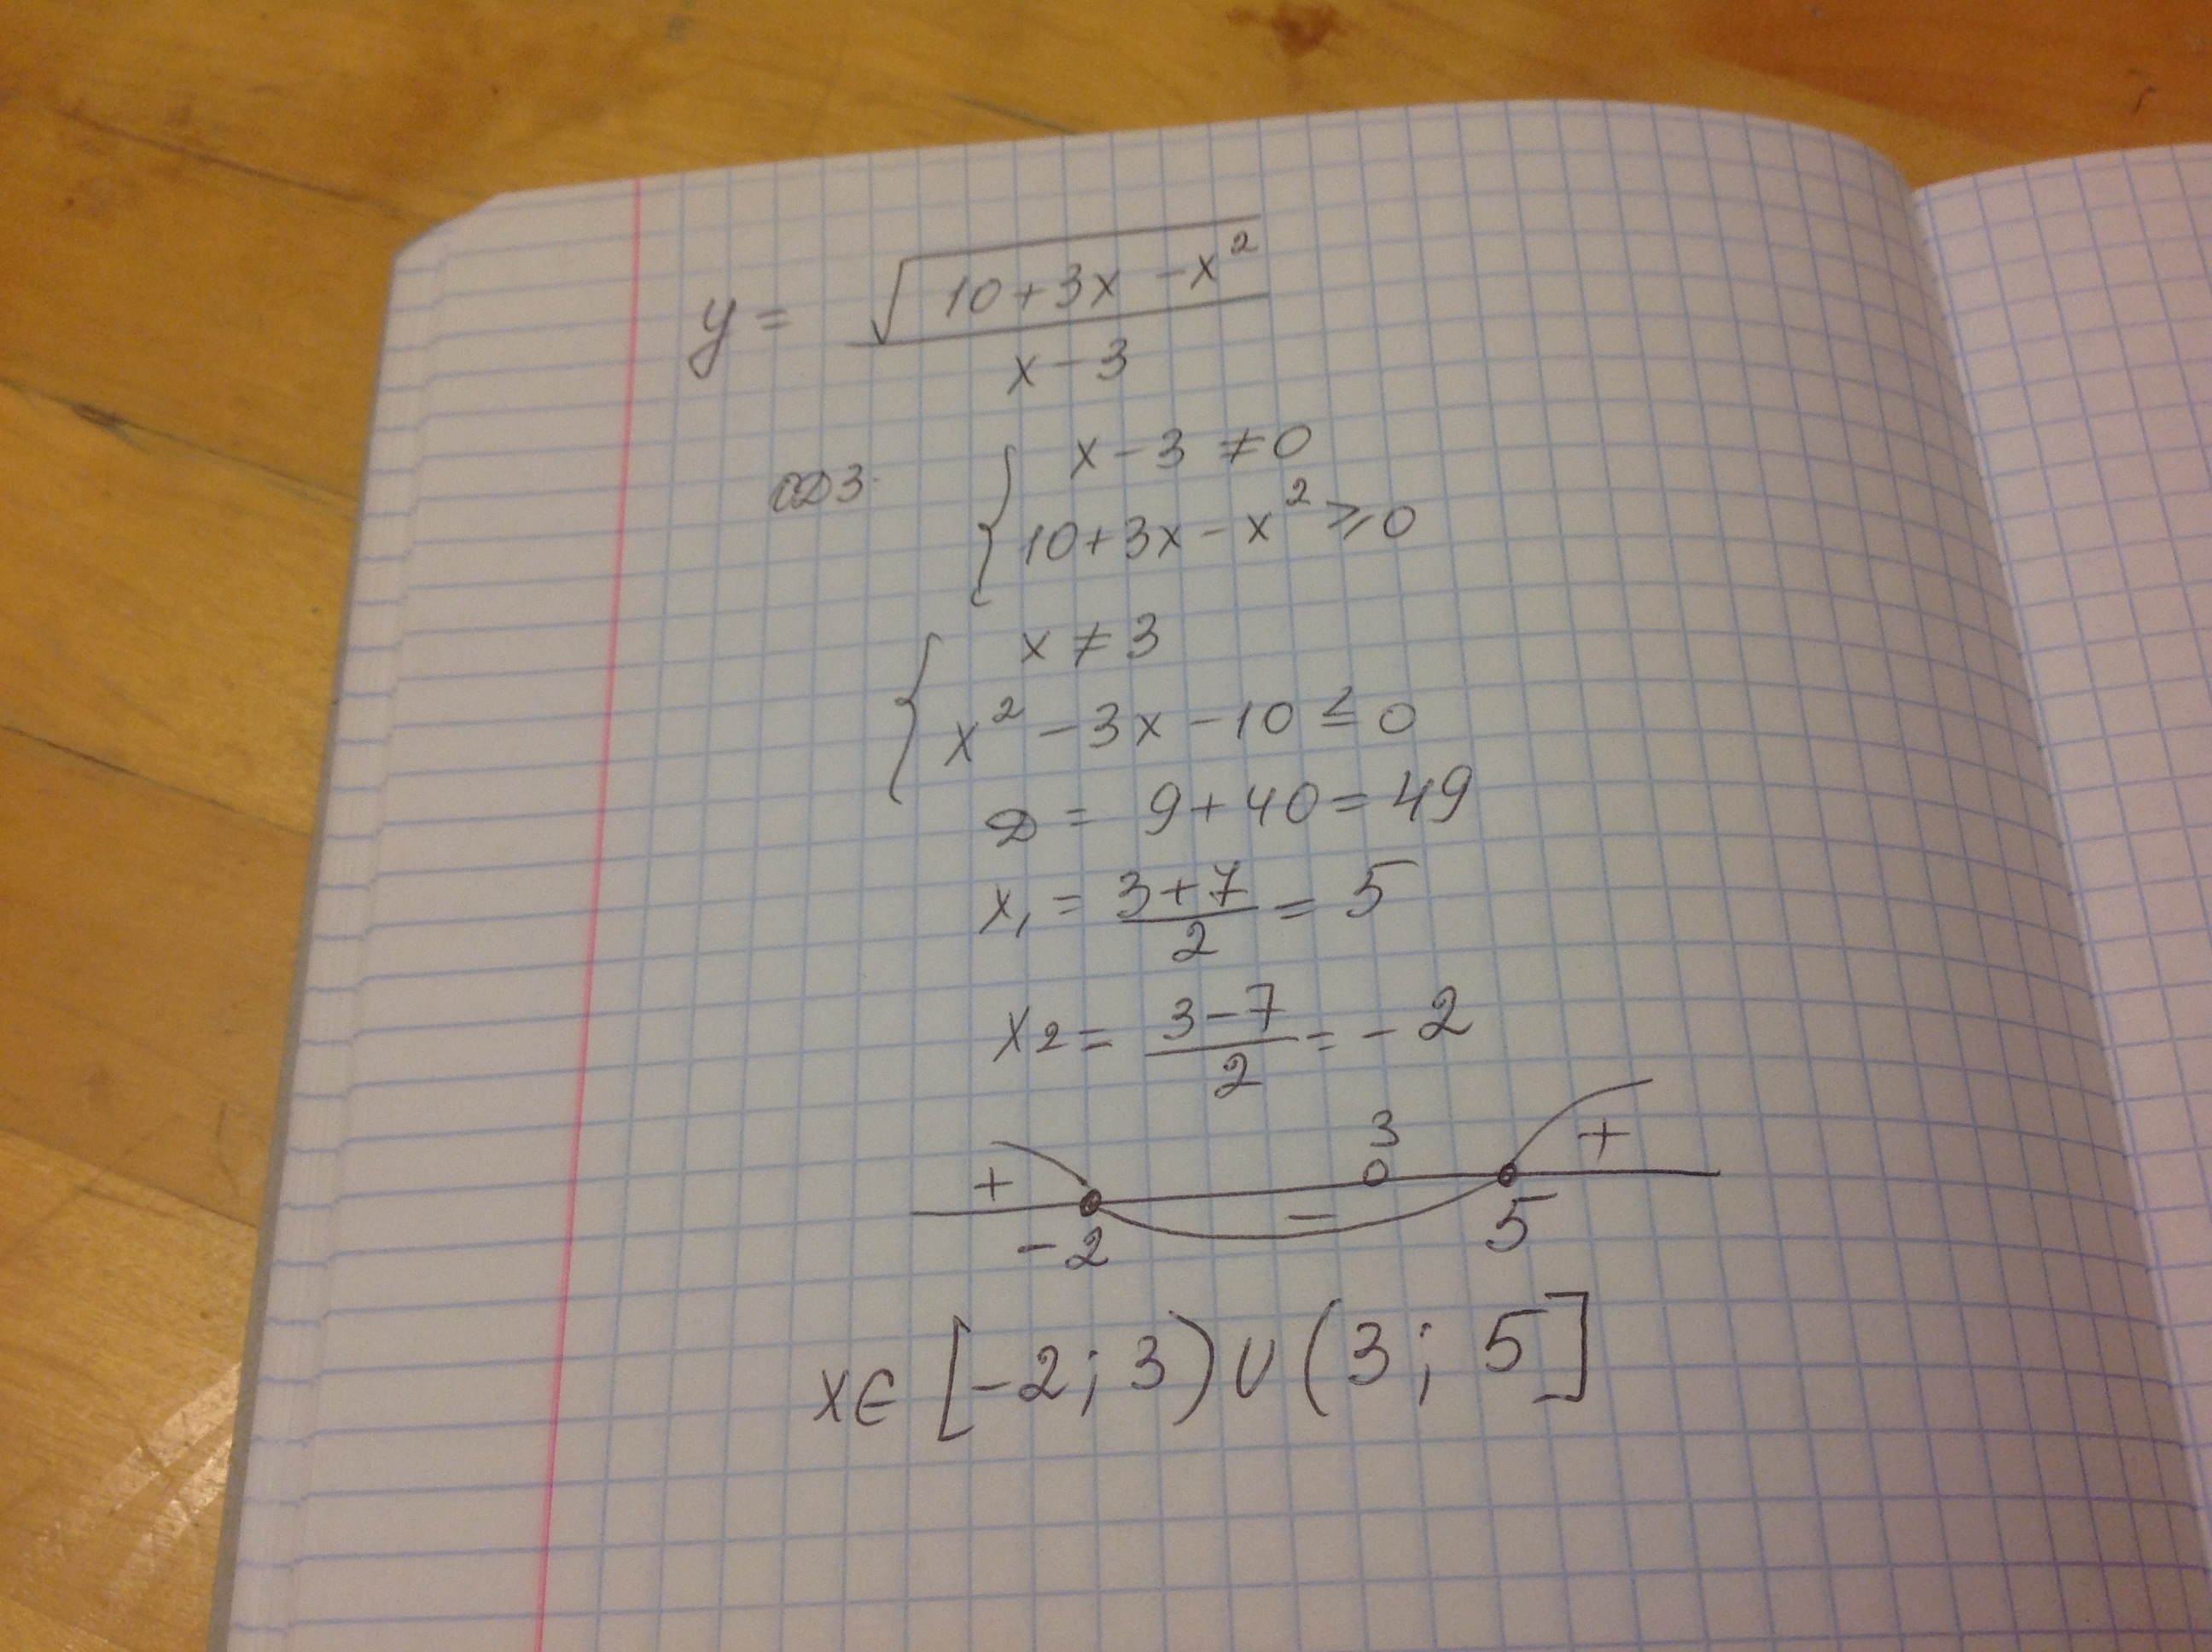 y = √(10+3x-x²) / (x-3)
ОДЗ. { x-3 ≠ 0
10+3x-x² ⩾ 0
{ x ≠ 3
x² - 3x - 10 ≤ 0
D = 9 + 40 = 49
x₁ = (3+7)/2 = 5
x₂ = (3-7)/2 = -2
3
+ - +
-2 5
x ∈ [-2; 3) ∪ (3; 5]